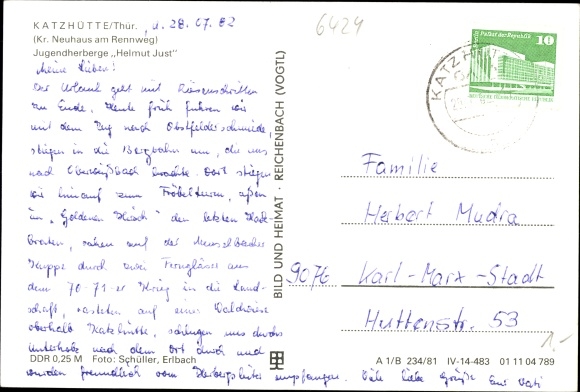 KATZHÜTTE/Thür., d. 28.07.82
(Kr. Neuhaus am Rennweg)
Jugendherberge „Helmut Just"
6424
Meine Lieben!
Der Urlaub geht mit Riesenschritten
zu Ende. Heute früh fuhren wir
mit dem Zug nach Obstfelderschmiede,
stiegen in die Bergbahn um, die uns
nach Oberweißbach brachte. Dort stiegen
wir hinauf zum Fröbelturm, aßen
im „Goldenen Hirsch" den letzten
Braten, sahen auf der Meuselbacher
Kuppe durch zwei Ferngläser aus
dem 70-71-er Krieg in die Land-
schaft, rasteten auf einer Waldwiese
oberhalb Katzhütte, schlugen uns
unterhalb nach dem Ort durch und
wurden freundlich vom Herbergsleiter empfangen. Viele liebe Grüße Eus Vati
DDR 0,25 M Foto: Schüller, Erlbach
BILD UND HEIMAT · REICHENBACH (VOGTL)
Palast der Republik 10
KATZHÜTTE
Familie
Herbert Mudra
9076 Karl-Marx-Stadt
Huttenstr. 53
1.-
A 1/B 234/81 IV-14-483 01 11 04 789